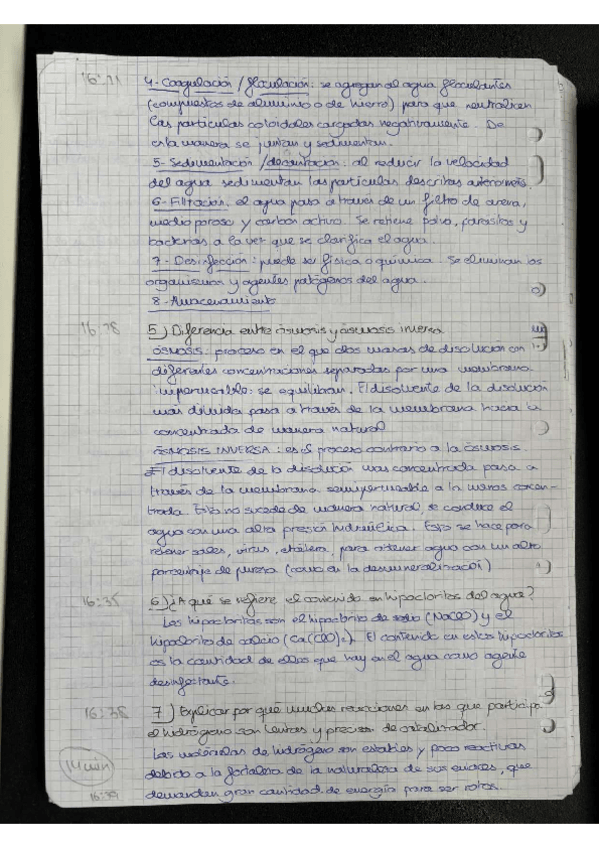 16:11 4- Coagulación / floculación: se agregan al agua floculantes
(compuestos de aluminio o de hierro) para que neutralicen
las partículas coloidales cargadas negativamente. De
esta manera se juntan y sedimentan.
5- Sedimentación / decantación: al reducir la velocidad
del agua sedimentan las partículas descritas
6- Filtración: el agua pasa a través de un filtro de arena,
medio poroso y carbón activo. Se retiene polvo, parásitos y
bacterias a la vez que se clarifica el agua.
7- Desinfección: puede ser física o química. Se eliminan los
organismos y agentes patógenos del agua.
8- Almacenamiento
5) Diferencia entre ósmosis y ósmosis inversa
ÓSMOSIS: proceso en el que dos masas de disolución con
diferentes concentraciones separadas por una membrana
se equilibran. El disolvente de la disolución
más diluida pasa a través de la membrana hacia la
concentrada de manera natural
ÓSMOSIS INVERSA: es el proceso contrario a la ósmosis.
El disolvente de la disolución más concentrada pasa a
través de la membrana semipermeable a la menos concen-
trada. Esto no sucede de manera natural, se conduce el
agua con una alta presión hidráulica. Esto se hace para
retener sales, virus, etcétera, para obtener agua con un alto
porcentaje de pureza (como en la desmineralización)
16:35 6) ¿A qué se refiere el contenido en hipocloritos del agua?
Los hipocloritos son el hipoclorito de sodio (NaClO) y el
hipoclorito de calcio (Ca(ClO)2). El contenido en estos hipocloritos
es la cantidad de cloro que hay en el agua como agente
desinfectante.
16:38 7) Explicar por qué muchas reacciones en las que participa
el hidrógeno son lentas y precisan de catalizador.
Las moléculas de hidrógeno son estables y poco reactivas
14 min debido a la fortaleza de la naturaleza de sus enlaces, que
16:39 demandan gran cantidad de energía para ser rotos.